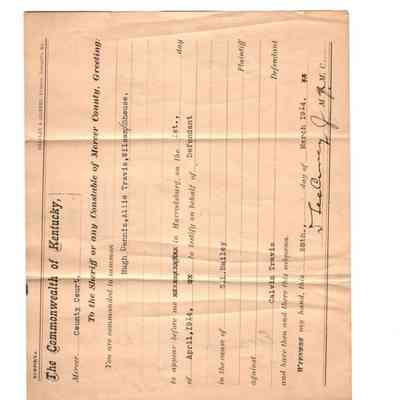 SUBPOENA.
The Commonwealth of Kentucky,
Mercer County Court,
To the Sheriff or any Constable of Mercer County, Greeting:
You are commanded to summon
Hugh Dennis, Allie Travis, Wilson
to appear before me in Harrodsburg, on the 1st., day
of April, 1914, to testify on behalf of Defendant
in the cause of S.L. Bailey Plaintiff
against Calvin Travis Defendant
and have then and there this subpoena.
WITNESS my hand, this 28th., day of March 1914.
J M. C.